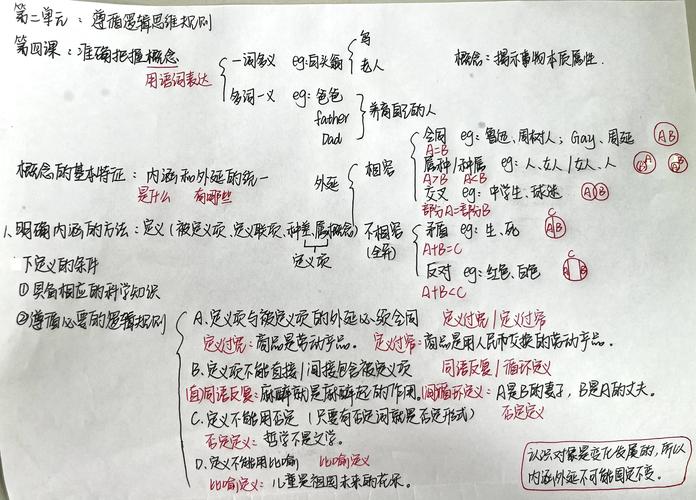 第二单元：遵循逻辑思维规则
第四课：准确把握概念
用语词表达
一词多义 eg：白头翁
鸟
老人
多词一义 eg：爸爸
father
Dad
养育自己的人
概念：揭示事物本质属性.
概念的基本特征：内涵和外延的统一
是什么 有哪些
外延
相容
全同 eg：鲁迅、周树人；Gay、周延
A=B
AB
属种/种属 eg：人、女人/女人、人
A>B A<B
交叉 eg：中学生、球迷
部分A=部分B
AB
不相容
(全异)
矛盾 eg：生、死
A+B=C
C
AB
反对 eg：红色、白色
A+B<C
C
A B
1、明确内涵的方法：定义(被定义项、定义联项、种差、属概念)
定义项
下定义的条件
①具备相应的科学知识
②遵循必要的逻辑规则
A.定义项与被定义项的外延必须全同 定义过宽/定义过窄
定义过宽：商品是劳动产品。定义过窄：商品是用人民币交换的劳动产品。
B.定义项不能直接/间接包含被定义项 同语反复/循环定义
直同语反复：麻醉就是麻醉起的作用。间循环定义：A是B的妻子，B是A的丈夫。
C.定义不能用否定(只要有否定词就是否定形式) 否定定义
否定定义：哲学不是文学。
D.定义不能用比喻 比喻定义
比喻定义：儿童是祖国未来的花朵。
认识对象是变化发展的，所以
内涵外延不可能固定不变。